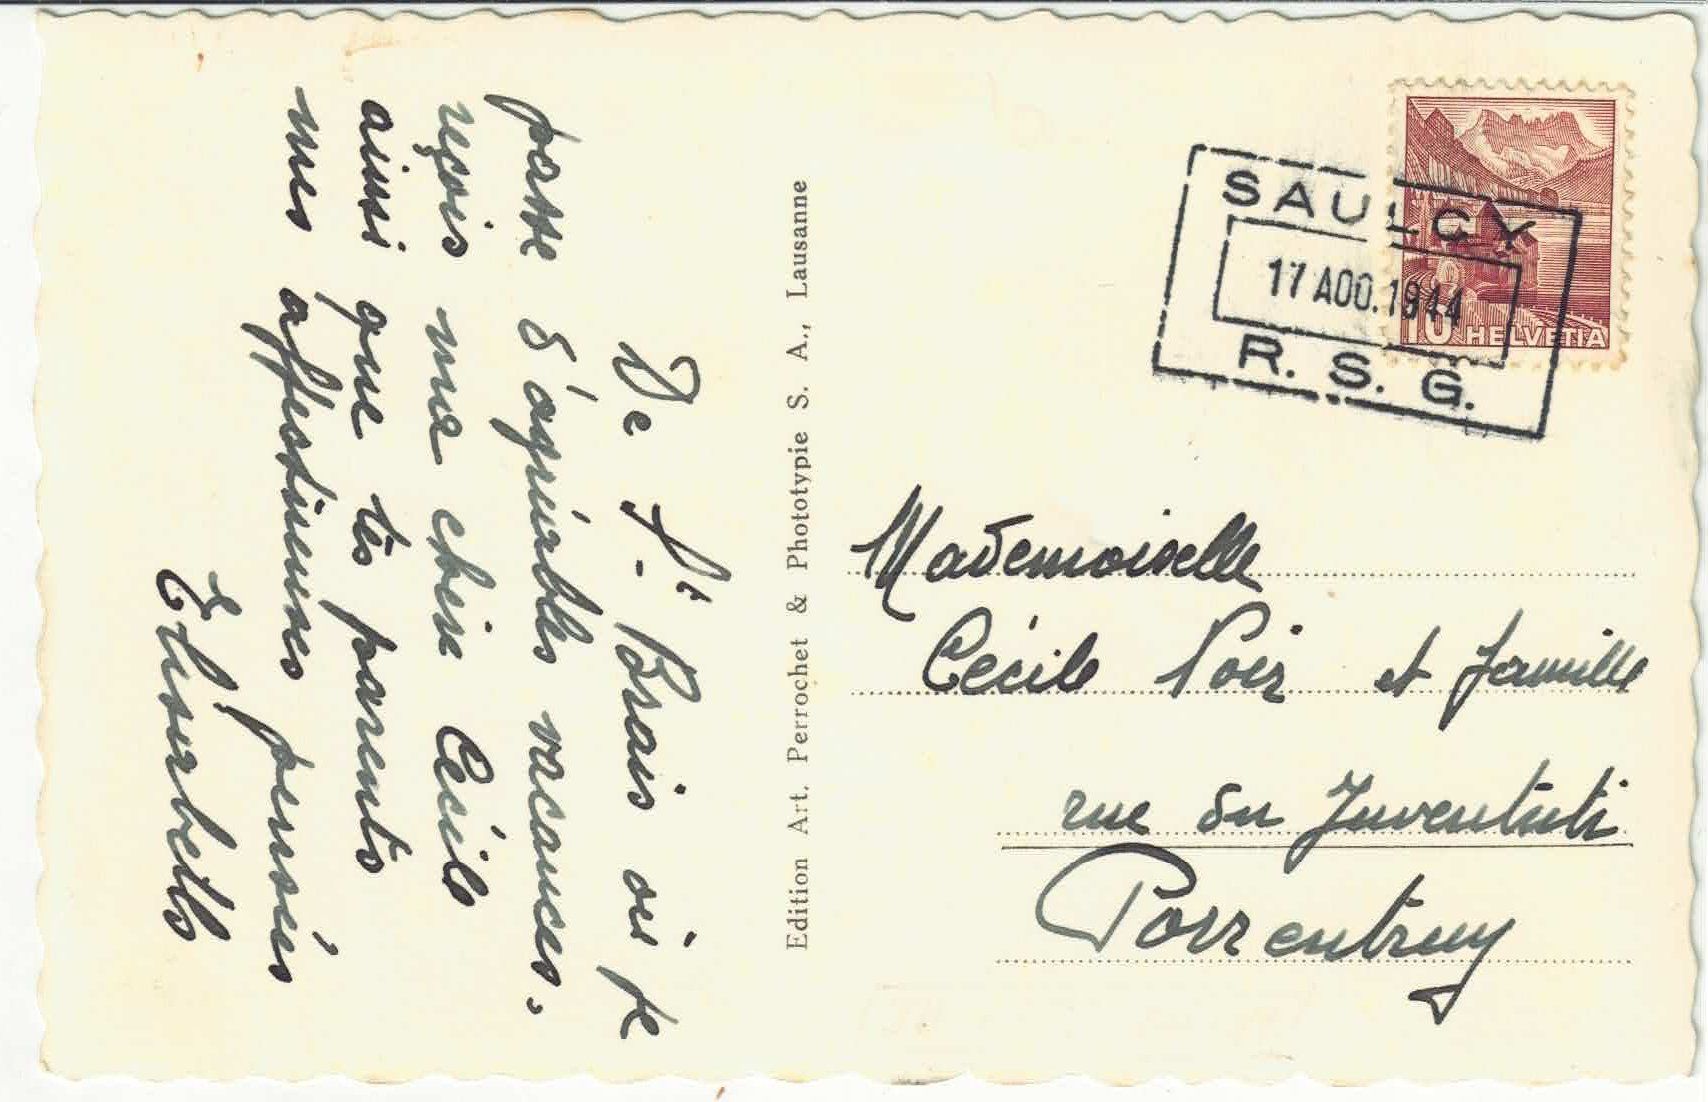 De St-Brais où je
passe d'agréables vacances,
reçois ma chère Cécile
ainsi que tes parents
mes affectueuses pensées
Elisabeth
Edition Art. Perrochet & Phototypie S. A., Lausanne
SAULCY
17 AOO.1944
R. S. G.
10 HELVETIA
Mademoiselle
Cécile et famille
rue du
Porrentruy